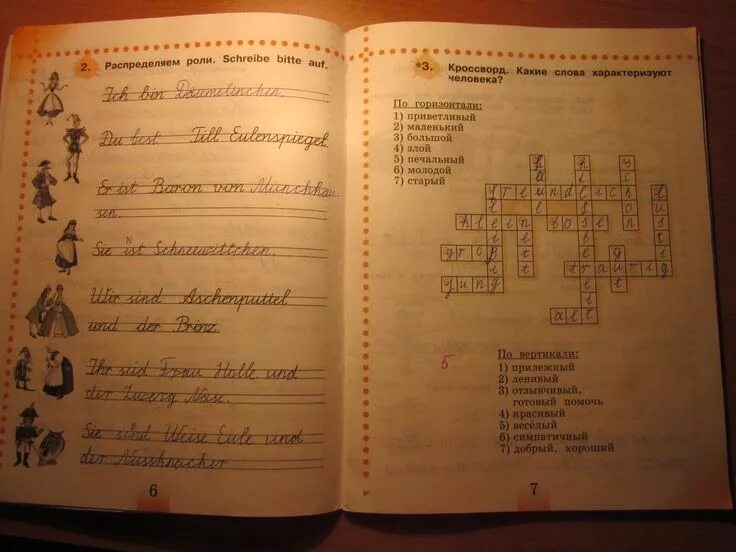 2. Распределяем роли. Schreibe bitte auf.
Ich bin Däumelinchen.
Du bist Till Eulenspiegel.
Er ist Baron von Münchhau-
sen.
Sie ist Schneewittchen.
Wir sind Aschenputtel
und der Prinz.
Ihr seid Frau Holle und
der Zwerg Nase.
Sie sind Weise Eule und
der Nussknacker
6
*3. Кроссворд. Какие слова характеризуют
человека?
По горизонтали:
1) приветливый
2) маленький
3) большой
4) злой
5) печальный
6) молодой
7) старый
freundlich
klein böse
groß
traurig
jung
alt
5
По вертикали:
1) прилежный
2) ленивый
3) отзывчивый,
готовый помочь
4) красивый
5) весёлый
6) симпатичный
7) добрый, хороший
7